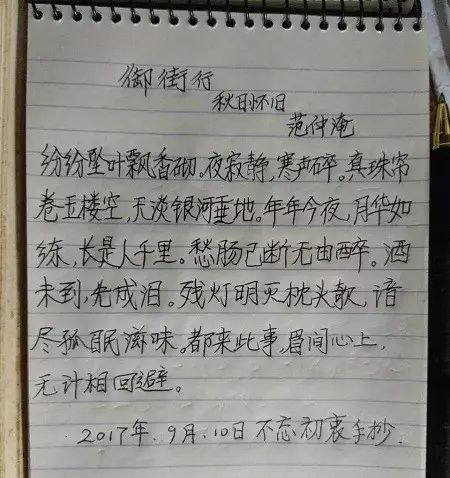 御街行
秋日怀旧
范仲淹
纷纷坠叶飘香砌。夜寂静,寒声碎。真珠帘
卷玉楼空,天淡银河垂地。年年今夜,月华如
练,长是人千里。愁肠已断无由醉。酒
未到,先成泪。残灯明灭枕头欹,谙
尽孤眠滋味。都来此事,眉间心上,
无计相回避。
2017年.9月.10日不忘初衷手抄.